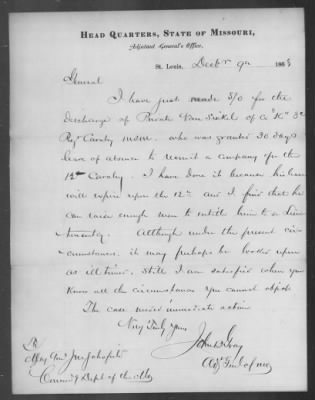 Head Quarters, State of Missouri,
Adjutant General's Office,
St. Louis, Decbr 9th 1863
General
I have just made S/O for the
discharge of Private Van of Co "K" 3d
Regt Cavalry M.S.M. who was granted 30 days
leave of absence to recruit a company for the
12th Cavalry. I have done it because his leave
will expire upon the 12th and I find that he
can raise enough men to entitle him to a Lieu
tenantcy. Although under the present cir
cumstances, it may perhaps be looked upon
as ill timed. Still I am satisfied when you
know all the circumstances you cannot object.
The case needed immediate action
Very Truly yours
John B Gray
Adj Genl of Mo
To
Maj Genl Jno Schofield
Commdg Dept of the Mo